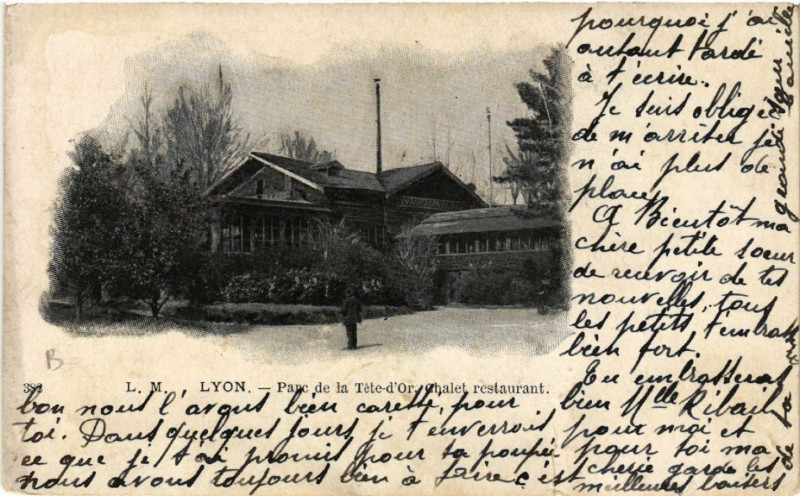 382 L. M. LYON. — Parc de la Tête-d'Or, Chalet restaurant.
B
bon nous l'avons bien caressé, pour
toi. Dans quelques jours je t'enverrois
ce que je t'ai promis pour ta poupée
nous avons toujours bien à faire c'est
pourquoi j'ai
autant tardé
à t'écrire.
Je suis obligée
de m'arrêter je
n'ai plus de
place
A Bientôt ma
chère petite sœur
de recevoir de tes
nouvelles, tous
les petits t'embrass
bien fort.
Tu embrasseras
bien Mlle
pour moi et
pour toi ma
chérie garde les
meilleures baisers
de ta
grande sœur